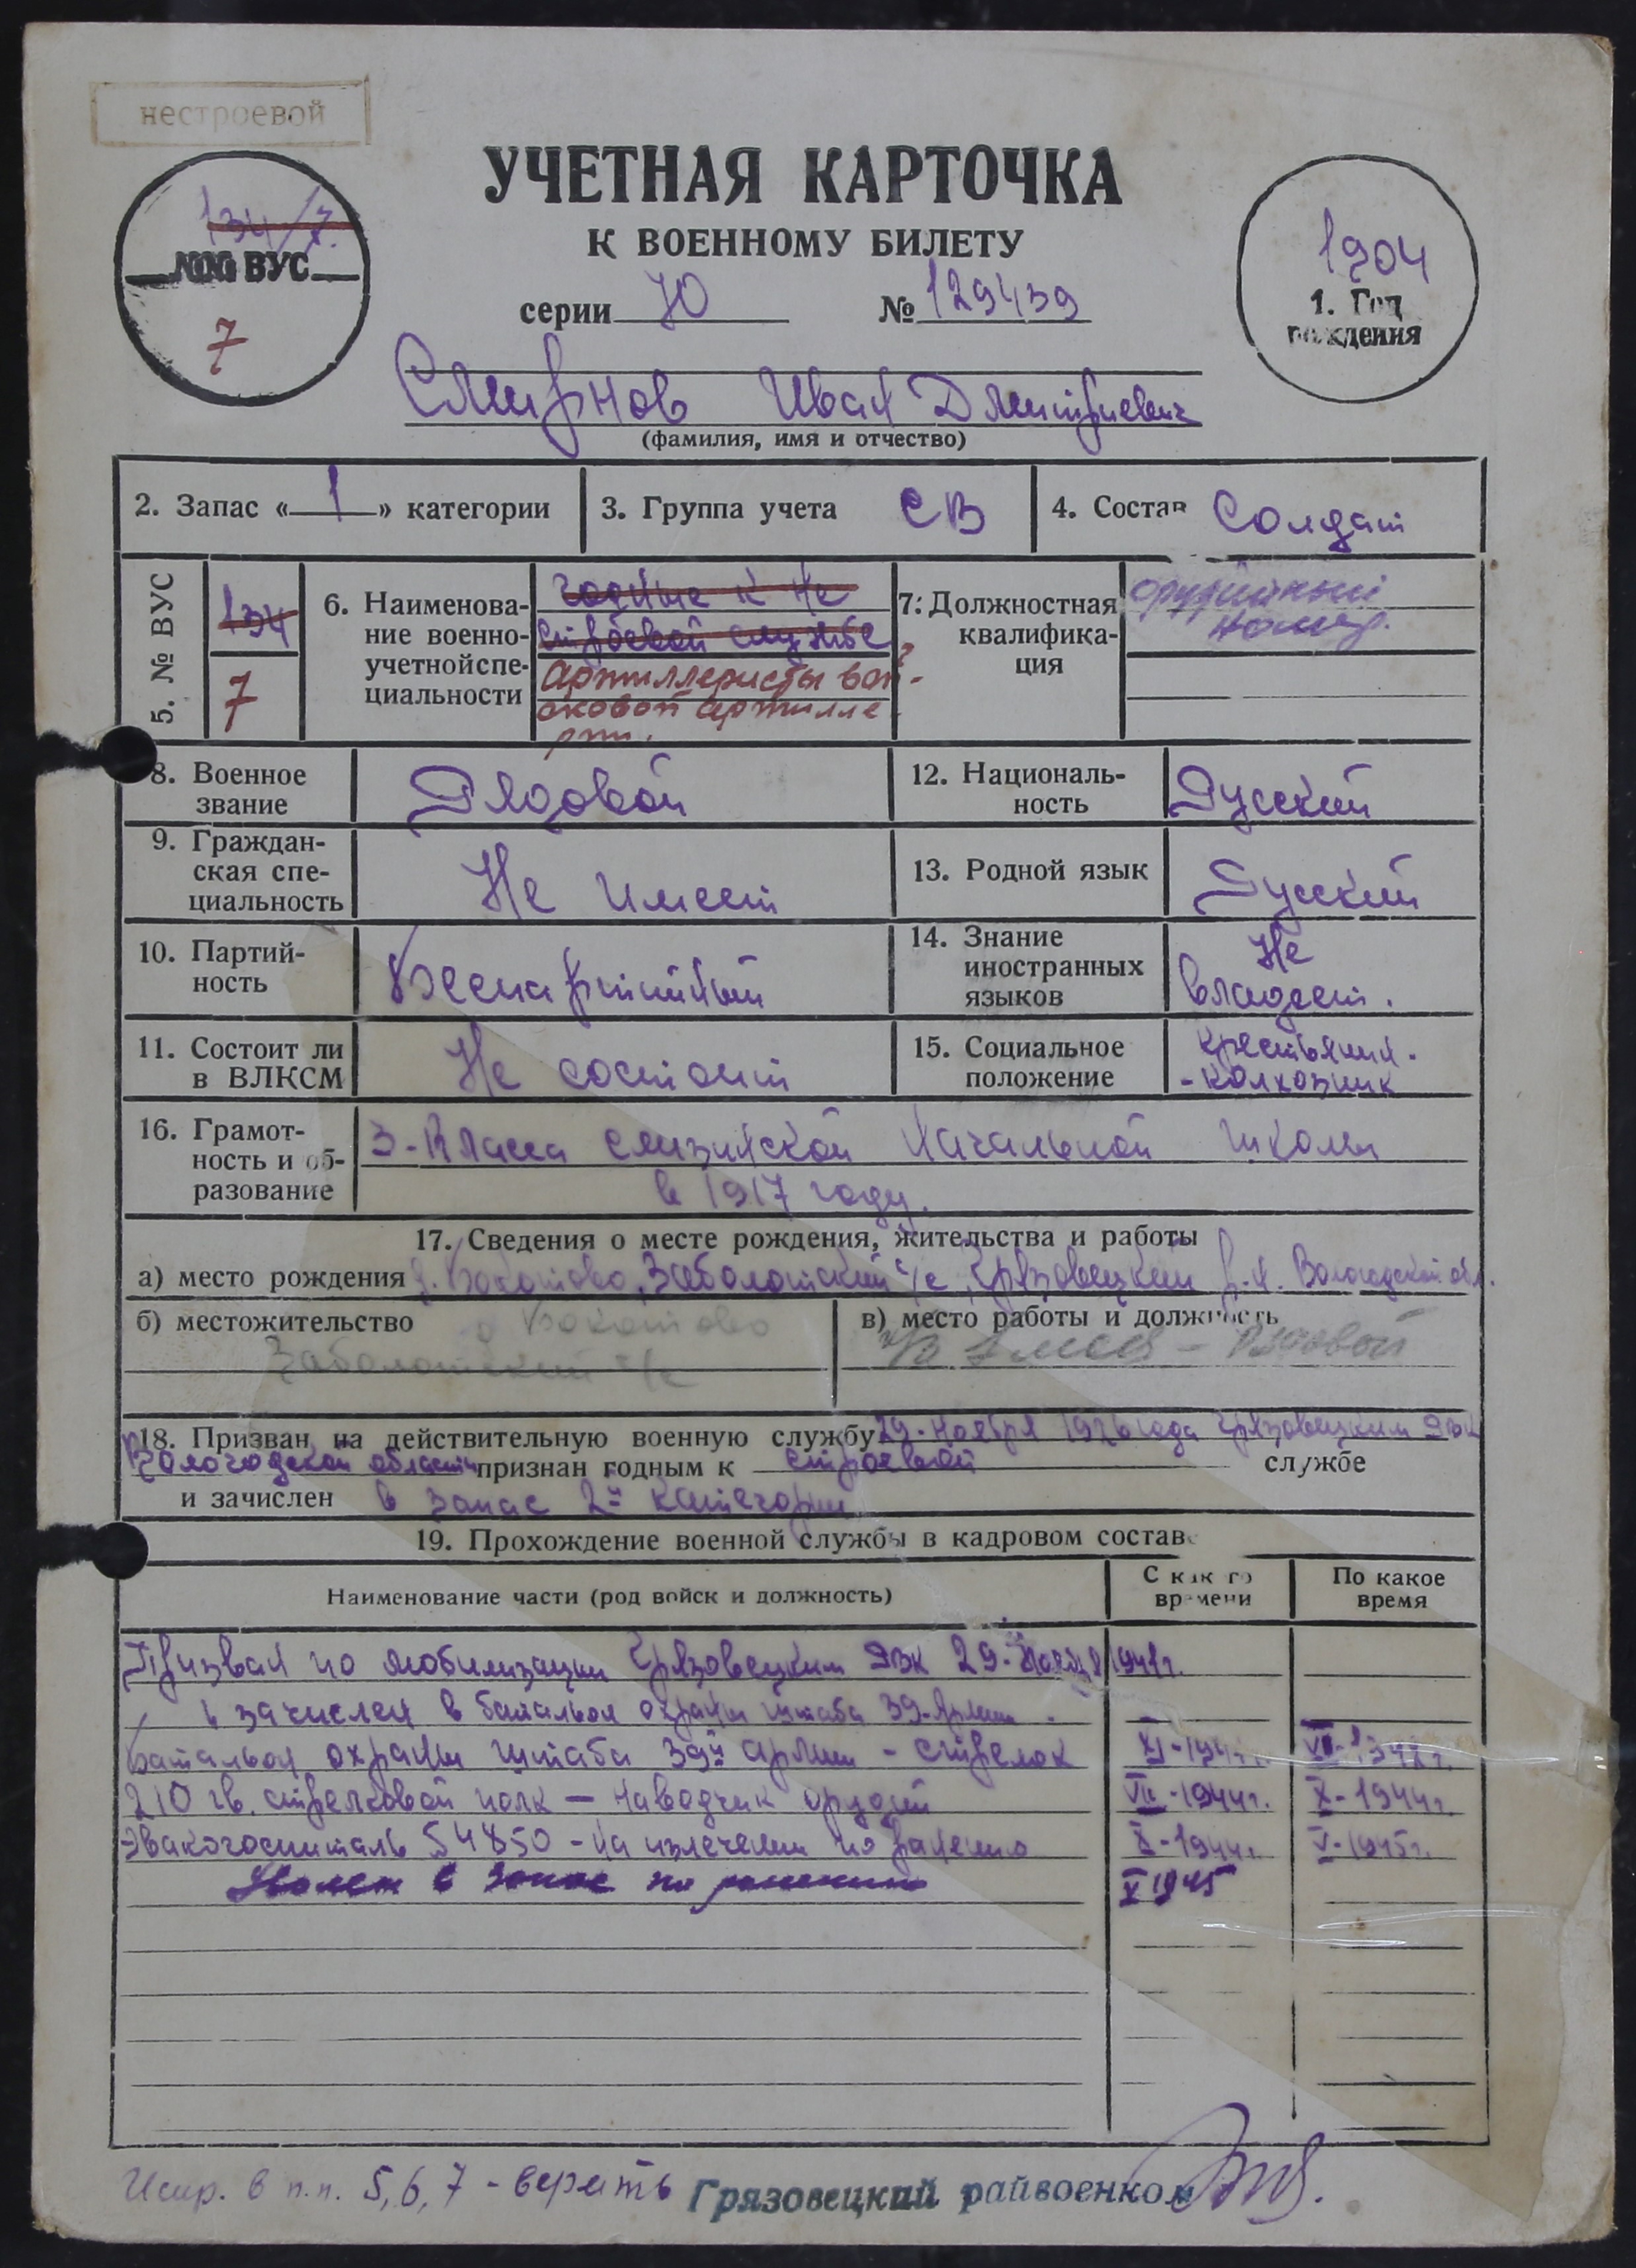 нестроевой
УЧЕТНАЯ КАРТОЧКА
К ВОЕННОМУ БИЛЕТУ
серии Ю № 129439
134/7
№№ ВУС
7
1904
1. Год
рождения
Смирнов Иван Дмитриевич
(фамилия, имя и отчество)
2. Запас « 1 » категории
3. Группа учета СВ
4. Состав Солдат
5. № ВУС
134
7
6. Наименова-
ние военно-
учетной спе-
циальности
годные к не
строевой службе
Артиллеристы вой-
сковой артилле
рии.
7. Должностная
квалифика-
ция
орудийный
номер.
8. Военное
звание
Рядовой
12. Националь-
ность
Русский
9. Граждан-
ская спе-
циальность
Не имеет
13. Родной язык
Русский
10. Партий-
ность
Беспартийный
14. Знание
иностранных
языков
Не
владеет.
11. Состоит ли
в ВЛКСМ
Не состоит
15. Социальное
положение
Крестьянин.
-колхозник
16. Грамот-
ность и об-
разование
3-класса начальной школы
в 1917 году.
17. Сведения о месте рождения, жительства и работы
а) место рождения д. Бакотово, Заболотский с/с, Грязовецкий р-н. Вологодской обл.
б) местожительство д Бакотово
Заболотский с/с
в) место работы и должность
- Рядовой
18. Призван на действительную военную службу 29-ноября 1926 года Грязовецким РВК
Вологодской области признан годным к строевой службе
и зачислен в запас 2й категории
19. Прохождение военной службы в кадровом составе
Наименование части (род войск и должность)
С какого
времени
По какое
время
Призван по мобилизации Грязовецким РВК 29-ноября 1941г.
и зачислен в батальон охраны штаба 39-Армии.
Батальон охраны штаба 39й армии - стрелок XI-194
210 гв. стрелковой полк - наводчик орудий VII-1944г. X-1944г.
Эвакогоспиталь 54850 - на излечении по ранению X-1944г. V-1945г.
Уволен в запас по ранению V 1945
Испр. в п.п. 5, 6, 7 - верить Грязовецкий райвоенком